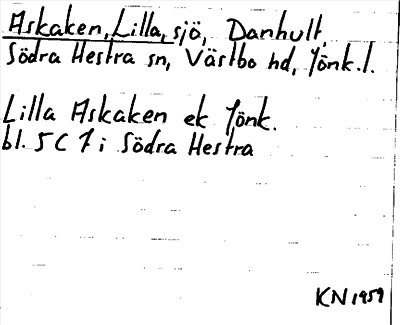 Askaken, Lilla, sjö, Danhult,
Södra Hestra sn, Västbo hd, Jönk.l.
Lilla Askaken ek Jönk.
bl. 5 C 7 i Södra Hestra
KN 1959